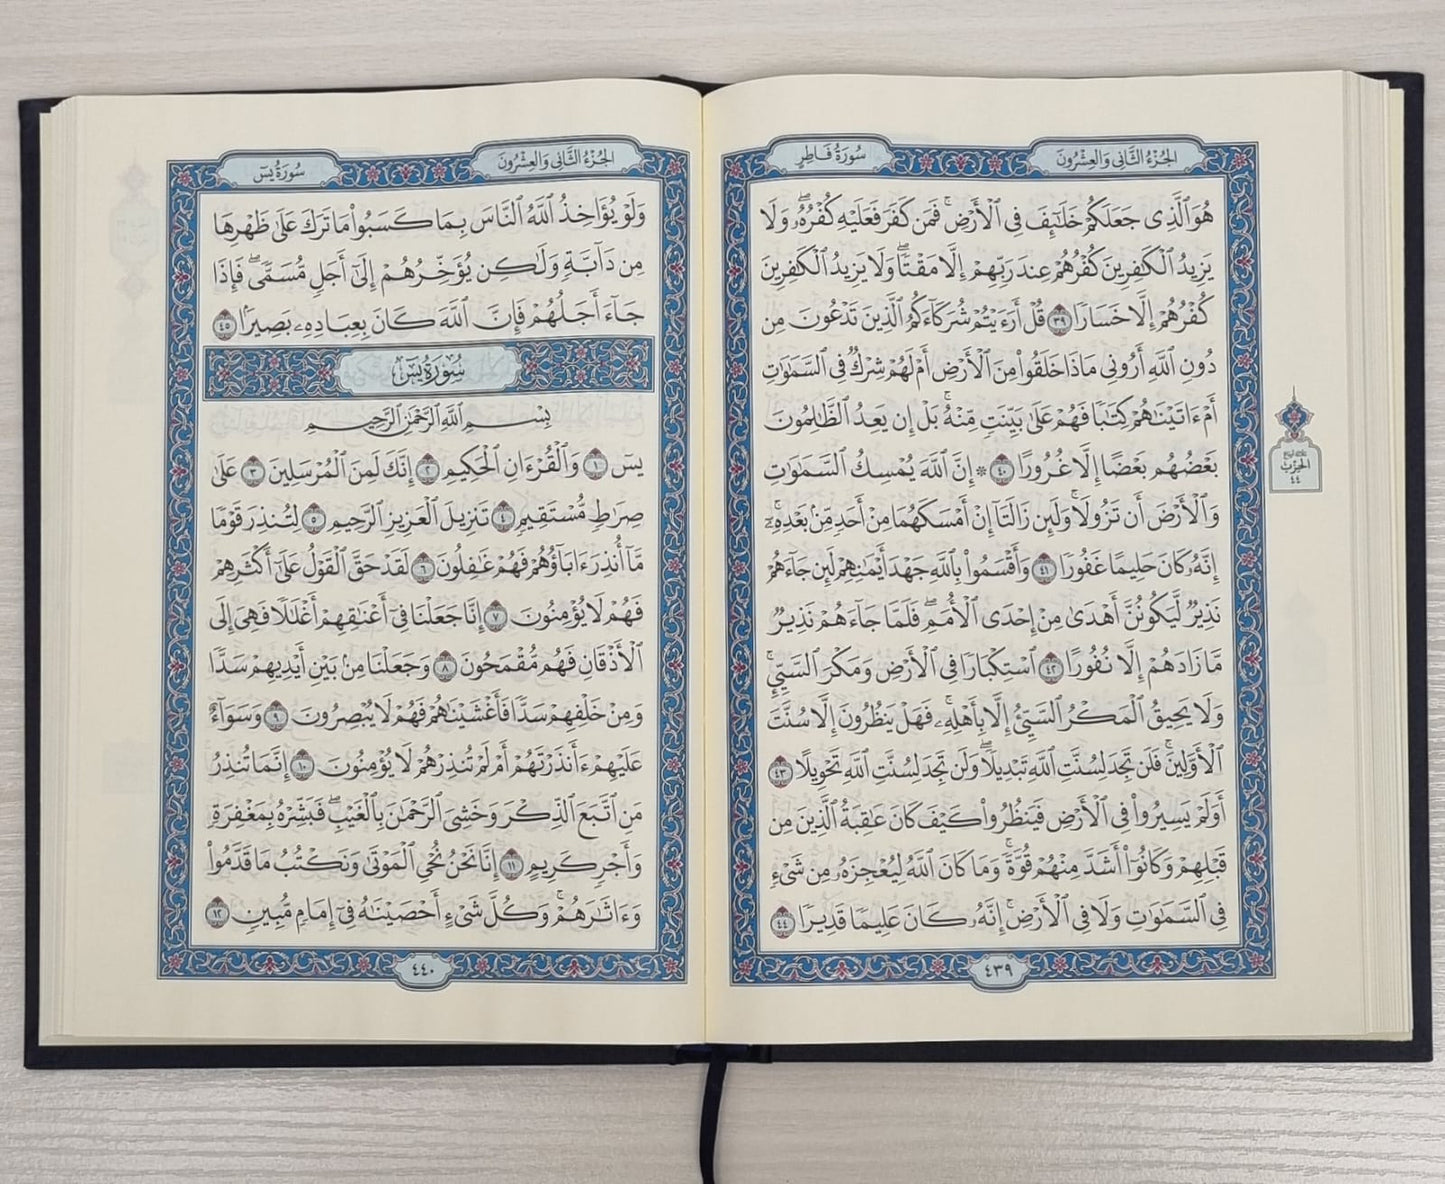 سُورَةُ فَاطِرٍ
الجُزْءُ الثَّانِي وَالعِشْرُونَ
هُوَ ٱلَّذِى جَعَلَكُمْ خَلَٰٓئِفَ فِى ٱلْأَرْضِ ۚ فَمَن كَفَرَ فَعَلَيْهِ كُفْرُهُۥ ۖ وَلَا
يَزِيدُ ٱلْكَٰفِرِينَ كُفْرُهُمْ عِندَ رَبِّهِمْ إِلَّا مَقْتًا ۖ وَلَا يَزِيدُ ٱلْكَٰفِرِينَ
كُفْرُهُمْ إِلَّا خَسَارًا ٣٩ قُلْ أَرَءَيْتُمْ شُرَكَآءَكُمُ ٱلَّذِينَ تَدْعُونَ مِن
دُونِ ٱللَّهِ أَرُونِى مَاذَا خَلَقُوا۟ مِنَ ٱلْأَرْضِ أَمْ لَهُمْ شِرْكٌ فِى ٱلسَّمَٰوَٰتِ
أَمْ ءَاتَيْنَٰهُمْ كِتَٰبًا فَهُمْ عَلَىٰ بَيِّنَتٍ مِّنْهُ ۚ بَلْ إِن يَعِدُ ٱلظَّٰلِمُونَ
بَعْضُهُم بَعْضًا إِلَّا غُرُورًا ٤٠ ۞ إِنَّ ٱللَّهَ يُمْسِكُ ٱلسَّمَٰوَٰتِ
وَٱلْأَرْضَ أَن تَزُولَا ۚ وَلَئِن زَالَتَآ إِنْ أَمْسَكَهُمَا مِنْ أَحَدٍ مِّنۢ بَعْدِهِۦٓ ۚ
إِنَّهُۥ كَانَ حَلِيمًا غَفُورًا ٤١ وَأَقْسَمُوا۟ بِٱللَّهِ جَهْدَ أَيْمَٰنِهِمْ لَئِن جَآءَهُمْ
نَذِيرٌ لَّيَكُونُنَّ أَهْدَىٰ مِنْ إِحْدَى ٱلْأُمَمِ ۖ فَلَمَّا جَآءَهُمْ نَذِيرٌ
مَّا زَادَهُمْ إِلَّا نُفُورًا ٤٢ ٱسْتِكْبَارًا فِى ٱلْأَرْضِ وَمَكْرَ ٱلسَّيِّئِ ۚ
وَلَا يَحِيقُ ٱلْمَكْرُ ٱلسَّيِّئُ إِلَّا بِأَهْلِهِۦ ۚ فَهَلْ يَنظُرُونَ إِلَّا سُنَّتَ
ٱلْأَوَّلِينَ ۚ فَلَن تَجِدَ لِسُنَّتِ ٱللَّهِ تَبْدِيلًا ۖ وَلَن تَجِدَ لِسُنَّتِ ٱللَّهِ تَحْوِيلًا ٤٣
أَوَلَمْ يَسِيرُوا۟ فِى ٱلْأَرْضِ فَيَنظُرُوا۟ كَيْفَ كَانَ عَٰقِبَةُ ٱلَّذِينَ مِن
قَبْلِهِمْ وَكَانُوٓا۟ أَشَدَّ مِنْهُمْ قُوَّةً ۚ وَمَا كَانَ ٱللَّهُ لِيُعْجِزَهُۥ مِن شَىْءٍ
فِى ٱلسَّمَٰوَٰتِ وَلَا فِى ٱلْأَرْضِ ۚ إِنَّهُۥ كَانَ عَلِيمًا قَدِيرًا ٤٤
٤٣٩
الحِزْب
٤٤
الجُزْءُ الثَّانِي وَالعِشْرُونَ
سُورَةُ يسٓ
وَلَوْ يُؤَاخِذُ ٱللَّهُ ٱلنَّاسَ بِمَا كَسَبُوا۟ مَا تَرَكَ عَلَىٰ ظَهْرِهَا
مِن دَآبَّةٍ وَلَٰكِن يُؤَخِّرُهُمْ إِلَىٰٓ أَجَلٍ مُّسَمًّى ۖ فَإِذَا
جَآءَ أَجَلُهُمْ فَإِنَّ ٱللَّهَ كَانَ بِعِبَادِهِۦ بَصِيرًۢا ٤٥
سُورَةُ يسٓ
بِسْمِ ٱللَّهِ ٱلرَّحْمَٰنِ ٱلرَّحِيمِ
يسٓ ١ وَٱلْقُرْءَانِ ٱلْحَكِيمِ ٢ إِنَّكَ لَمِنَ ٱلْمُرْسَلِينَ ٣ عَلَىٰ
صِرَٰطٍ مُّسْتَقِيمٍ ٤ تَنزِيلَ ٱلْعَزِيزِ ٱلرَّحِيمِ ٥ لِتُنذِرَ قَوْمًا
مَّآ أُنذِرَ ءَابَآؤُهُمْ فَهُمْ غَٰفِلُونَ ٦ لَقَدْ حَقَّ ٱلْقَوْلُ عَلَىٰٓ أَكْثَرِهِمْ
فَهُمْ لَا يُؤْمِنُونَ ٧ إِنَّا جَعَلْنَا فِىٓ أَعْنَٰقِهِمْ أَغْلَٰلًا فَهِىَ إِلَى
ٱلْأَذْقَانِ فَهُم مُّقْمَحُونَ ٨ وَجَعَلْنَا مِنۢ بَيْنِ أَيْدِيهِمْ سَدًّا
وَمِنْ خَلْفِهِمْ سَدًّا فَأَغْشَيْنَٰهُمْ فَهُمْ لَا يُبْصِرُونَ ٩ وَسَوَآءٌ
عَلَيْهِمْ ءَأَنذَرْتَهُمْ أَمْ لَمْ تُنذِرْهُمْ لَا يُؤْمِنُونَ ١٠ إِنَّمَا تُنذِرُ
مَنِ ٱتَّبَعَ ٱلذِّكْرَ وَخَشِىَ ٱلرَّحْمَٰنَ بِٱلْغَيْبِ ۖ فَبَشِّرْهُ بِمَغْفِرَةٍ
وَأَجْرٍ كَرِيمٍ ١١ إِنَّا نَحْنُ نُحْىِ ٱلْمَوْتَىٰ وَنَكْتُبُ مَا قَدَّمُوا۟
وَءَاثَٰرَهُمْ ۚ وَكُلَّ شَىْءٍ أَحْصَيْنَٰهُ فِىٓ إِمَامٍ مُّبِينٍ ١٢
٤٤٠